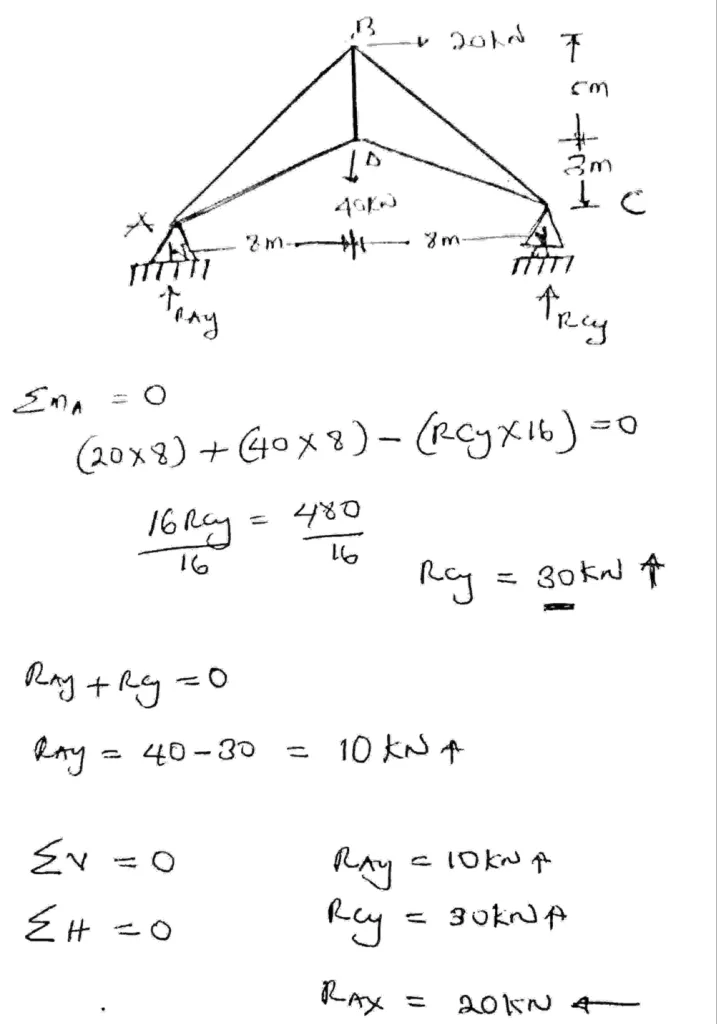 B
20kN
5m
D
3m
40KN
C
A
8m
8m
RAy
RCy
ΣMA = 0
(20x8) + (40x8) - (RCyx16) = 0
16RCy = 480
16 16
RCy = 30kN ↑
RAy + RCy = 0
RAy = 40-30 = 10 kN ↑
ΣV = 0 RAy = 10kN ↑
ΣH = 0 RCy = 30kN ↑
RAX = 20kN ←